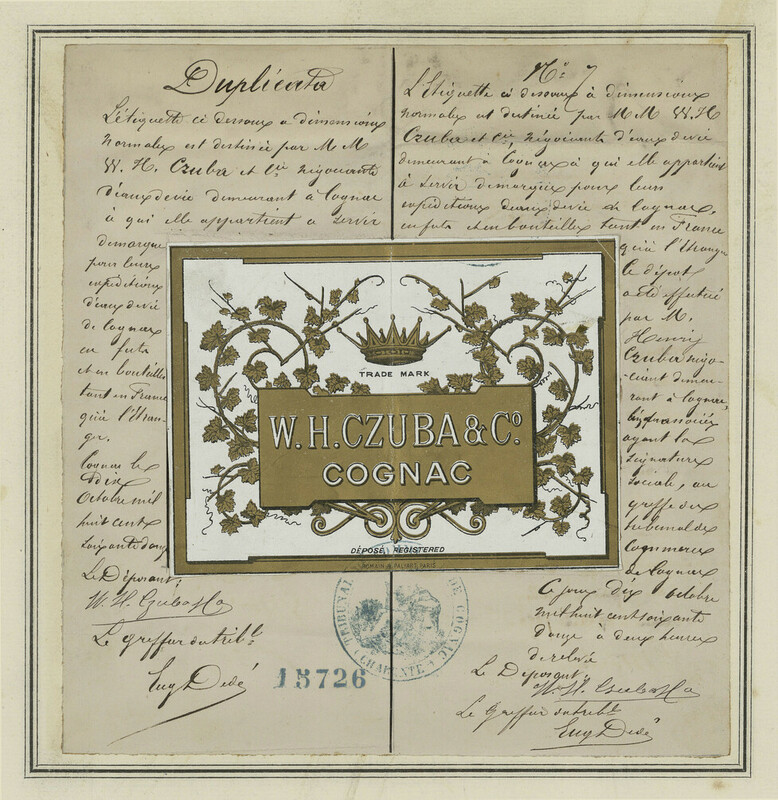 Duplicata
L'étiquette ci dessous a dimensions
normales est destinée par M M
W. H. Czuba et Cie négociants
d'eaux de vie demeurant à Cognac
à qui elle appartient a servir
de marque
pour leurs
expéditions
d'eaux de vie
de Cognac
en futs
et en bouteilles
tant en France
qu'à l'Etran-
ger.
Cognac le
dix
Octobre mil
huit cent
soixante douze
Le Déposant;
W. H. Czuba & Co
Le greffier du trib.l
Eug Dedé
No 7
L'étiquette ci dessous à dimensions
normales est destinée par M M W. H
Czuba et Cie négociants d'eaux de vie
demeurant à Cognac à qui elle appartient
à servir de marque pour leurs
expéditions d'eaux de vie de Cognac,
en futs et en bouteilles tant en France
qu'à l'Etranger
Le dépot
a été effectué
par M.
Henry
Czuba négo-
-ciant demeu-
rant à Cognac,
associés
ayant la
signature
sociale, au
greffe du
tribunal de
Commerce
de Cognac
Ce jour dix octobre
mil huit cent soixante
douze à deux heures
de relevé
Le Déposant;
W. H. Czuba & Co
Le Greffier du trib.l
Eug Dedé
TRADE MARK
W. H. CZUBA & Co
COGNAC
DÉPOSÉ, REGISTERED
ROMAIN & PALYART, PARIS
TRIBUNAL DE COGNAC
(CHARENTE)
15726